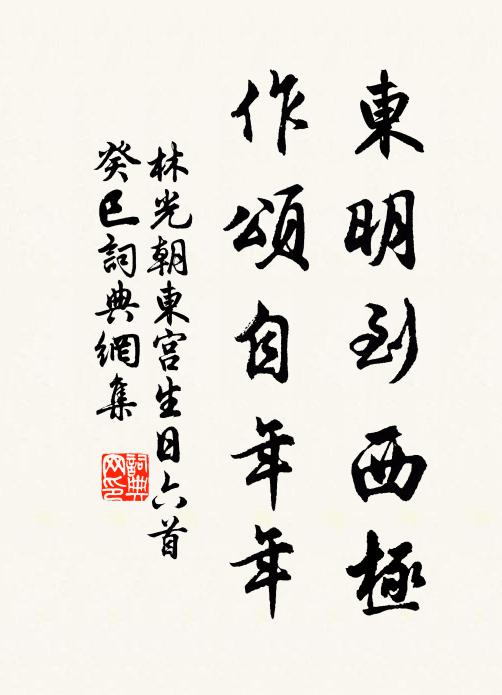 東明到西極
作頌自年年
林光朝東宮生日六首
癸巳詞典網集
詞典网印